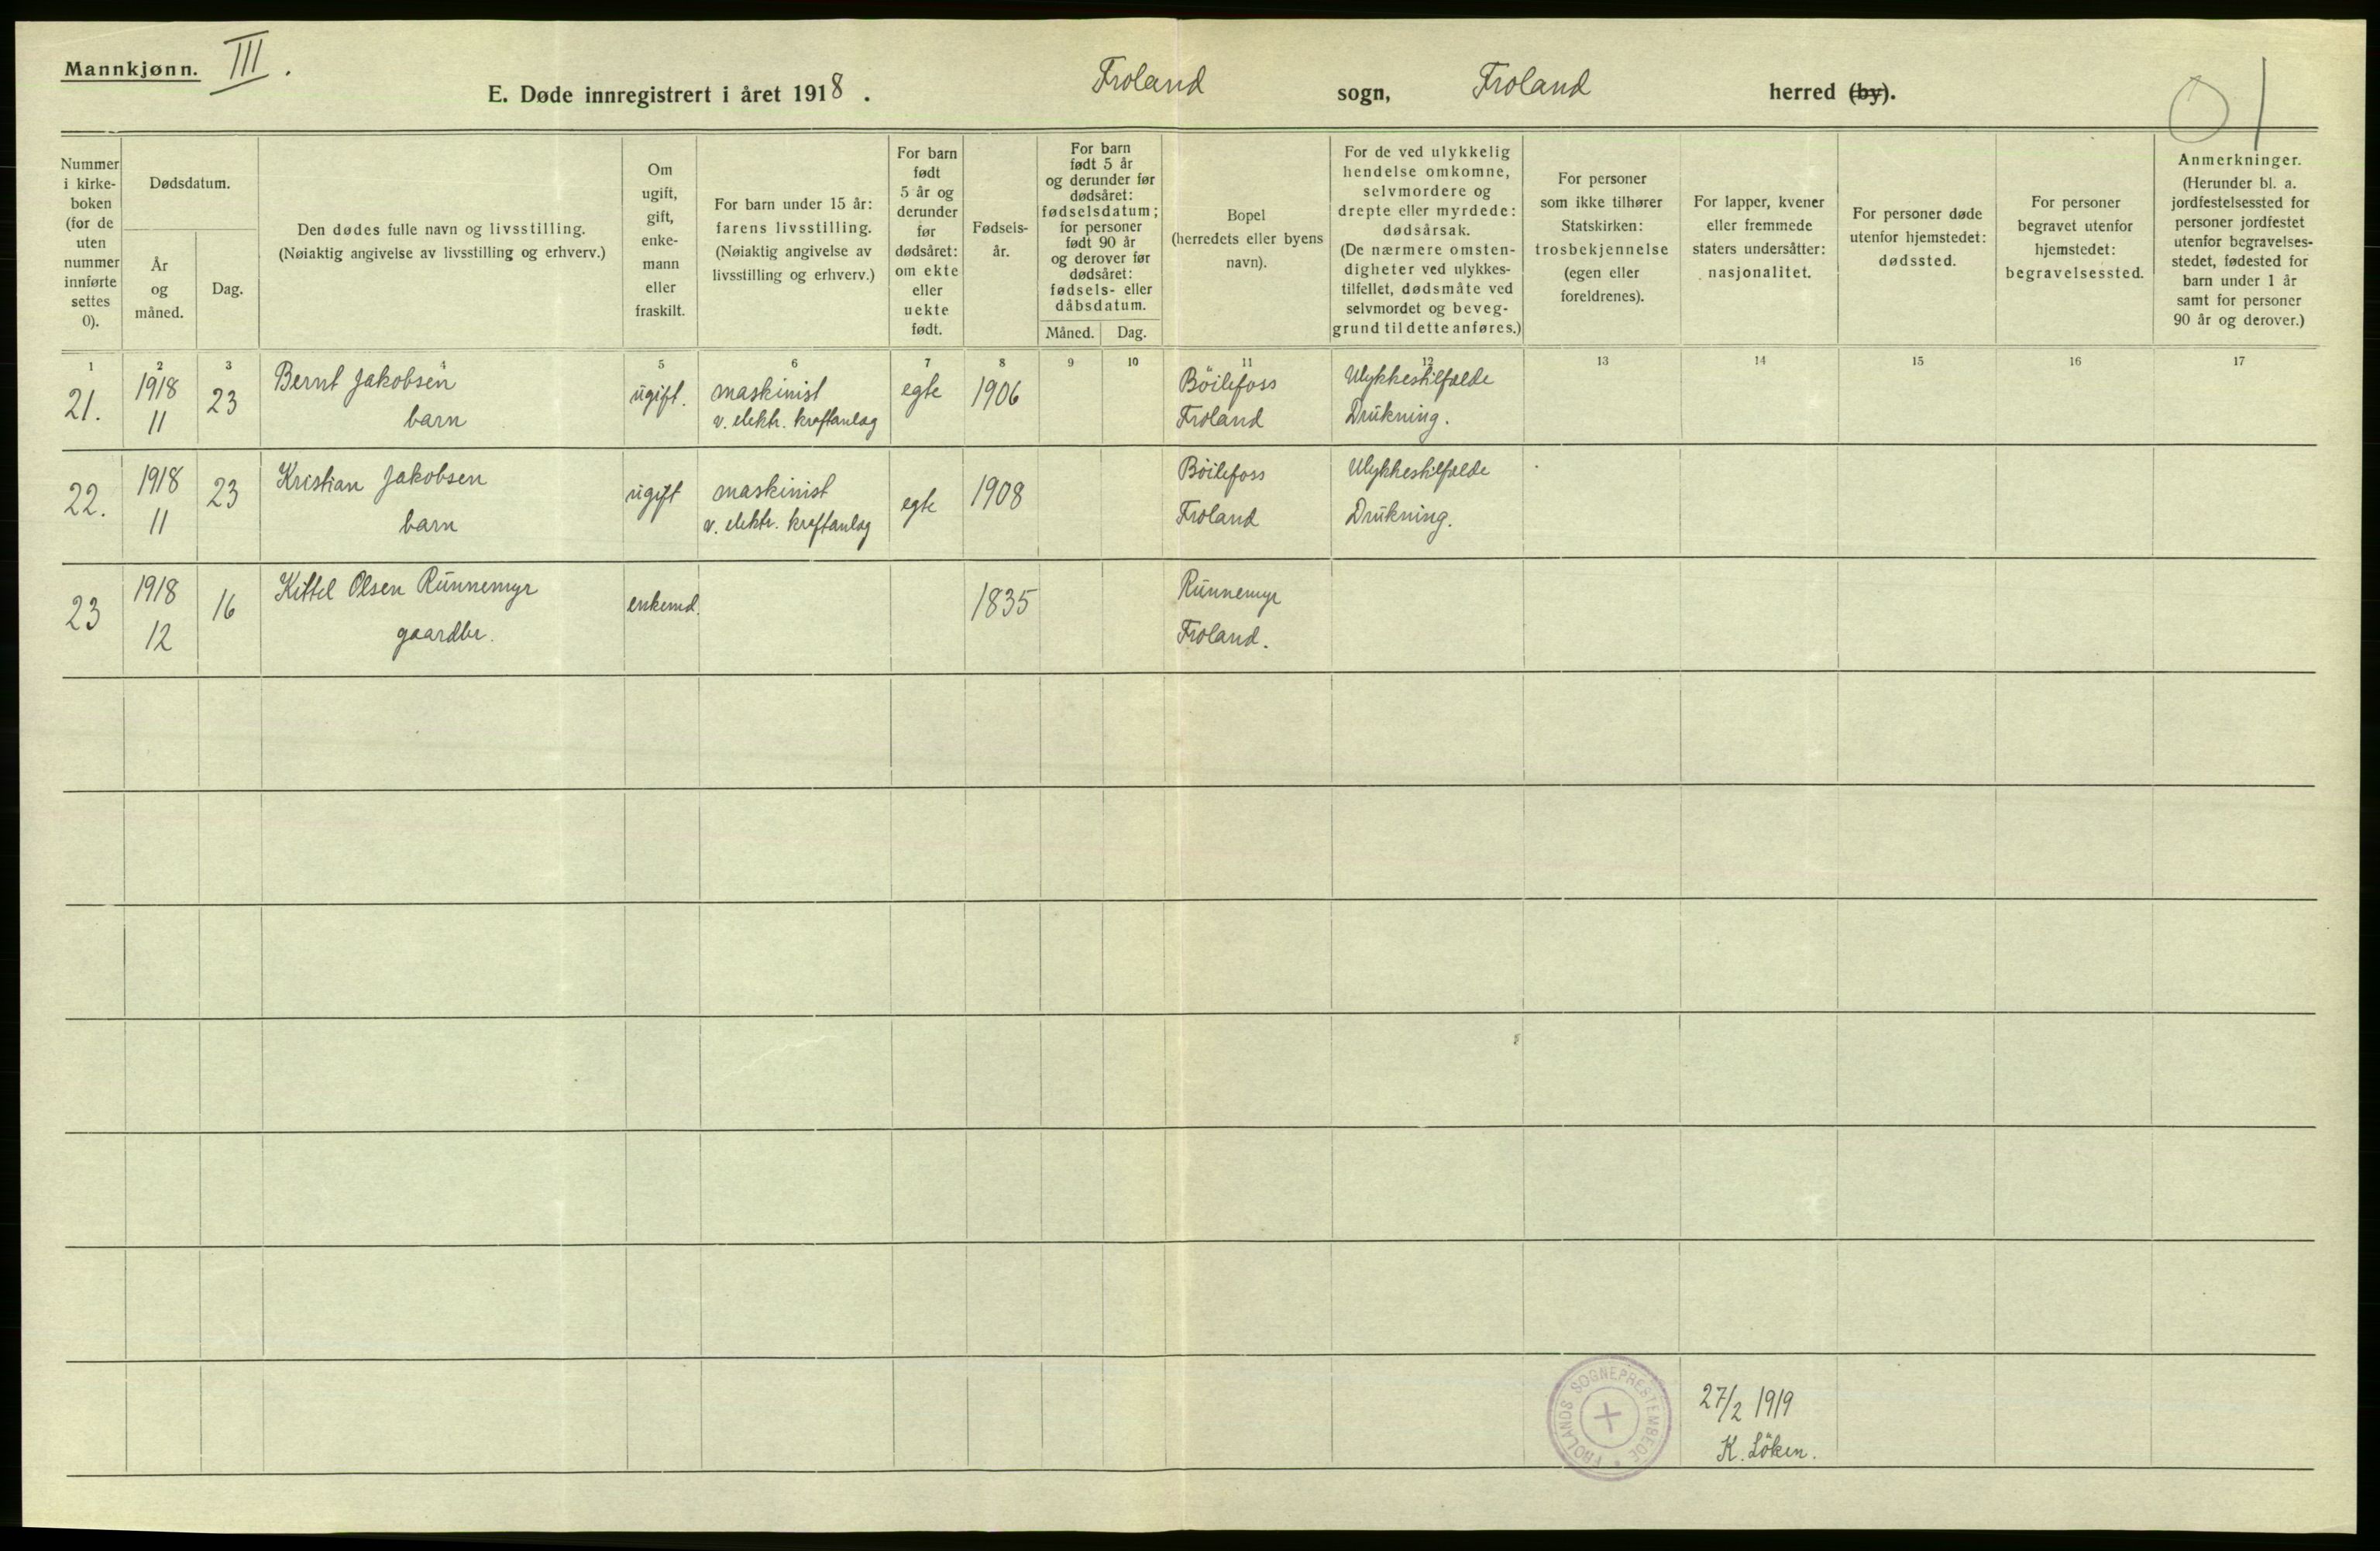 Mannkjønn. III.
E. Døde innregistrert i året 1918. Froland sogn, Froland herred (by).
01
Nummer
i kirke-
boken
(for de
uten
nummer
innførte
settes
0).
Dødsdatum.
År
og
måned.
Dag.
Den dødes fulle navn og livsstilling.
(Nøiaktig angivelse av livsstilling og erhverv.)
Om
ugift,
gift,
enke-
mann
eller
fraskilt.
For barn under 15 år:
farens livsstilling.
(Nøiaktig angivelse av
livsstilling og erhverv.)
For barn
født
5 år og
derunder
før
dødsåret:
om ekte
eller
uekte
født.
Fødsels-
år.
For barn
født 5 år
og derunder før
dødsåret:
fødselsdatum;
for personer
født 90 år
og derover før
dødsåret:
fødsels- eller
dåbsdatum.
Måned. Dag.
Bopel
(herredets eller byens
navn).
For de ved ulykkelig
hendelse omkomne,
selvmordere og
drepte eller myrdede:
dødsårsak.
(De nærmere omsten-
digheter ved ulykkes-
tilfellet, dødsmåte ved
selvmordet og beveg-
grund til dette anføres.)
For personer
som ikke tilhører
Statskirken:
trosbekjennelse
(egen eller
foreldrenes).
For lapper, kvener
eller fremmede
staters undersåtter:
nasjonalitet.
For personer døde
utenfor hjemstedet:
dødssted.
For personer
begravet utenfor
hjemstedet:
begravelsessted.
Anmerkninger.
(Herunder bl. a.
jordfestelsessted for
personer jordfestet
utenfor begravelses-
stedet, fødested for
barn under 1 år
samt for personer
90 år og derover.)
1 2 3 4 5 6 7 8 9 10 11 12 13 14 15 16 17
21.
1918
11
23
Bernt Jakobsen
barn
ugift.
maskinist
v. elektr. kraftanlæg
egte
1906
Böilefoss
Froland
Ulykkestilfælde
Drukning.
22.
1918
11
23
Kristian Jakobsen
barn
ugift
maskinist
v. elektr. kraftanlæg
egte
1908
Böilefoss
Froland
Ulykkestilfælde
Drukning.
23
1918
12
16
Kittel Olsen Runnemyr
gaardbr.
enkemd.
1835
Runnemyr
Froland.
FROLANDS SOGNEPRESTEMBEDE
27/2 1919
K. Löken.